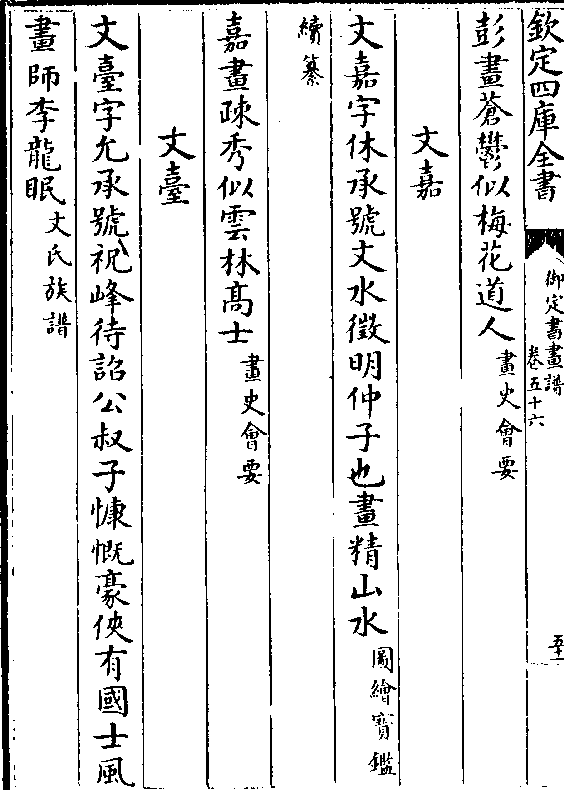 欽定四庫全書
御定書畫譜
卷五十六
五十一
彭畫蒼鬱似梅花道人畫史會要
文嘉
文嘉字休承號文水徵明仲子也畫精山水圖繪寳鑑
續纂
嘉畫疎秀似雲林髙士畫史會要
文臺
文臺字允承號祝峰待詔公叔子慷慨豪俠有國士風
畫師李龍眠文氏族譜